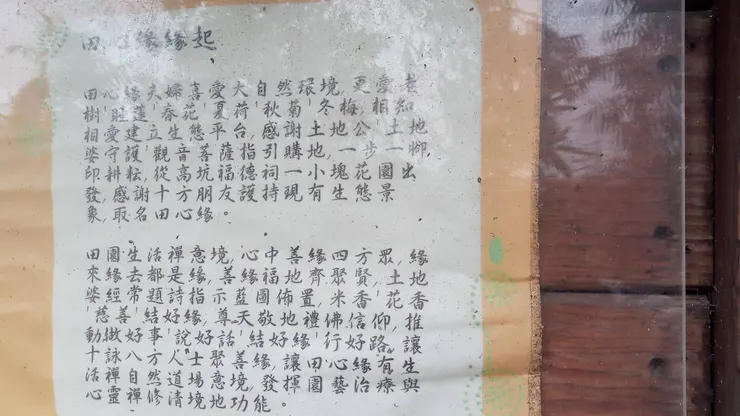 田心緣緣起
田心緣夫婦喜愛大自然環境,更愛老
樹'睡蓮'春花'夏荷'秋菊'冬梅,相知
相愛建立生態平台,感謝土地公'土地
婆守護'觀音菩薩指引購地,一步一腳
印耕耘,從高坑福德祠一小塊花園出
發,感謝十方朋友護持現有生態景
象,取名田心緣。
田園生活禪意境,心中善緣四方眾,緣
來緣去都是緣,善緣福地齊聚賢,土地
婆經常題詩指示藍圖佈置,米香'花香
'慈善'結好緣,尊天敬地禮佛信仰,推
動做好事'說好話'結好緣'行好路,讓
十詠八方人士聚善緣,讓田心緣有生
活禪自然道場意境,發揮園藝治療與
心靈禪修清境地功能。